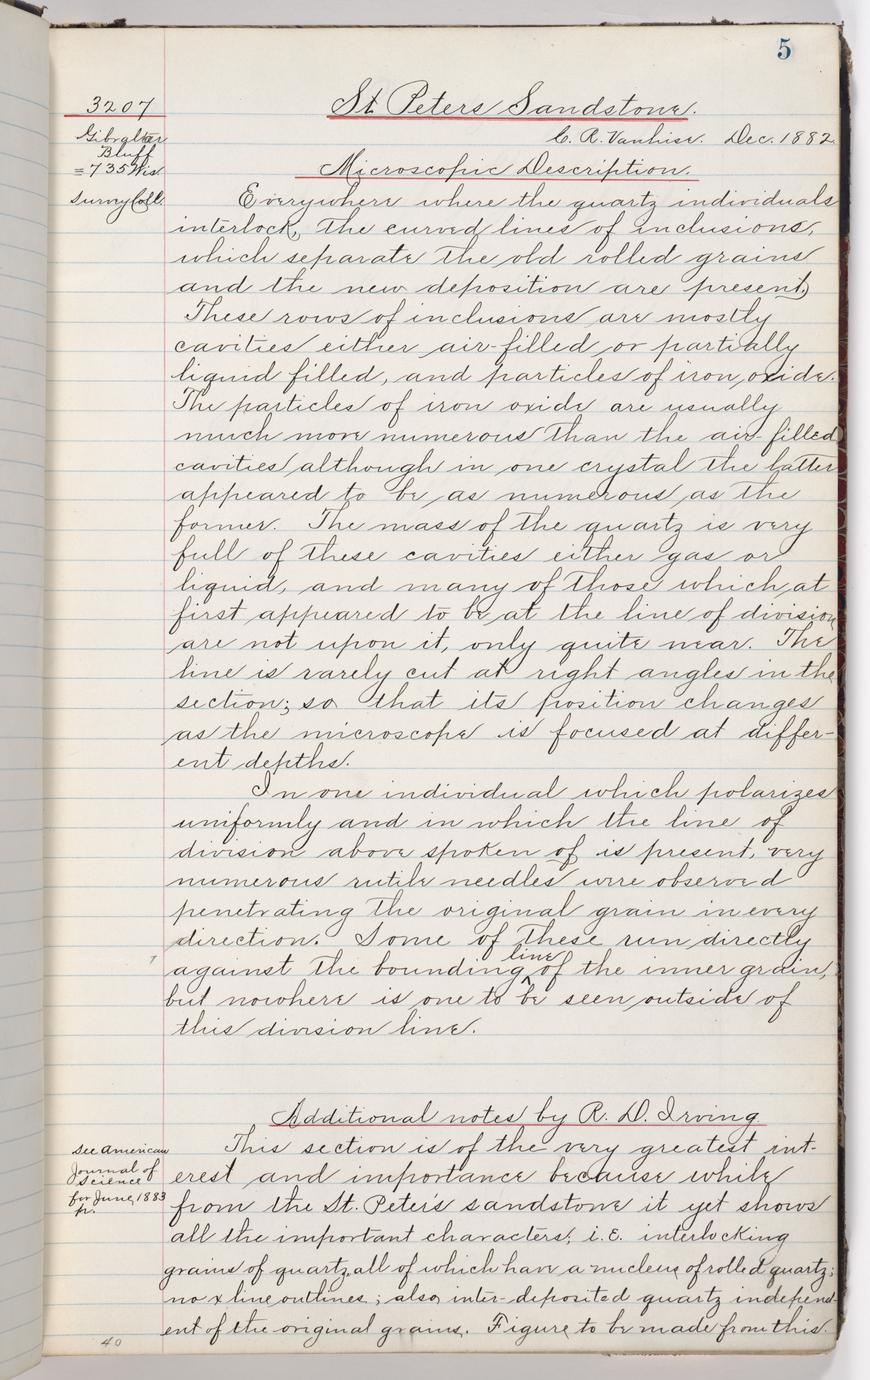 5
3207
St. Peters Sandstone.
Gibralter
Bluff
= 735 Wis.
Survey Coll.
C. R. Vanhise. Dec. 1882.
Microscopic Description.
Everywhere where the quartz individuals
interlock, the curved lines of inclusions,
which separate the old rolled grains
and the new deposition are present.
These rows of inclusions are mostly
cavities either air-filled or partially
liquid filled, and particles of iron oxide.
The particles of iron oxide are usually
much more numerous than the air-filled
cavities although in one crystal the latter
appeared to be as numerous as the
former. The mass of the quartz is very
full of these cavities either gas or
liquid, and many of those which at
first appeared to be at the line of division
are not upon it, only quite near. The
line is rarely cut at right angles in the
section; so that its position changes
as the microscope is focused at differ-
ent depths.
In one individual which polarizes
uniformly and in which the line of
division above spoken of is present, very
numerous rutile needles were observed
penetrating the original grain in every
direction. Some of these run directly
against the bounding line of the inner grain,
but nowhere is one to be seen outside of
this division line.
Additional notes by R. D. Irving.
See American
Journal of
Science
for June, 1883
p.
This section is of the very greatest int-
erest and importance because while
from the St. Peter's sandstone it yet shows
all the important characters; i.e. interlocking
grains of quartz, all of which have a nucleus of rolled quartz;
no x line outlines; also inter-deposited quartz independ-
ent of the original grains. Figure to be made from this.
40